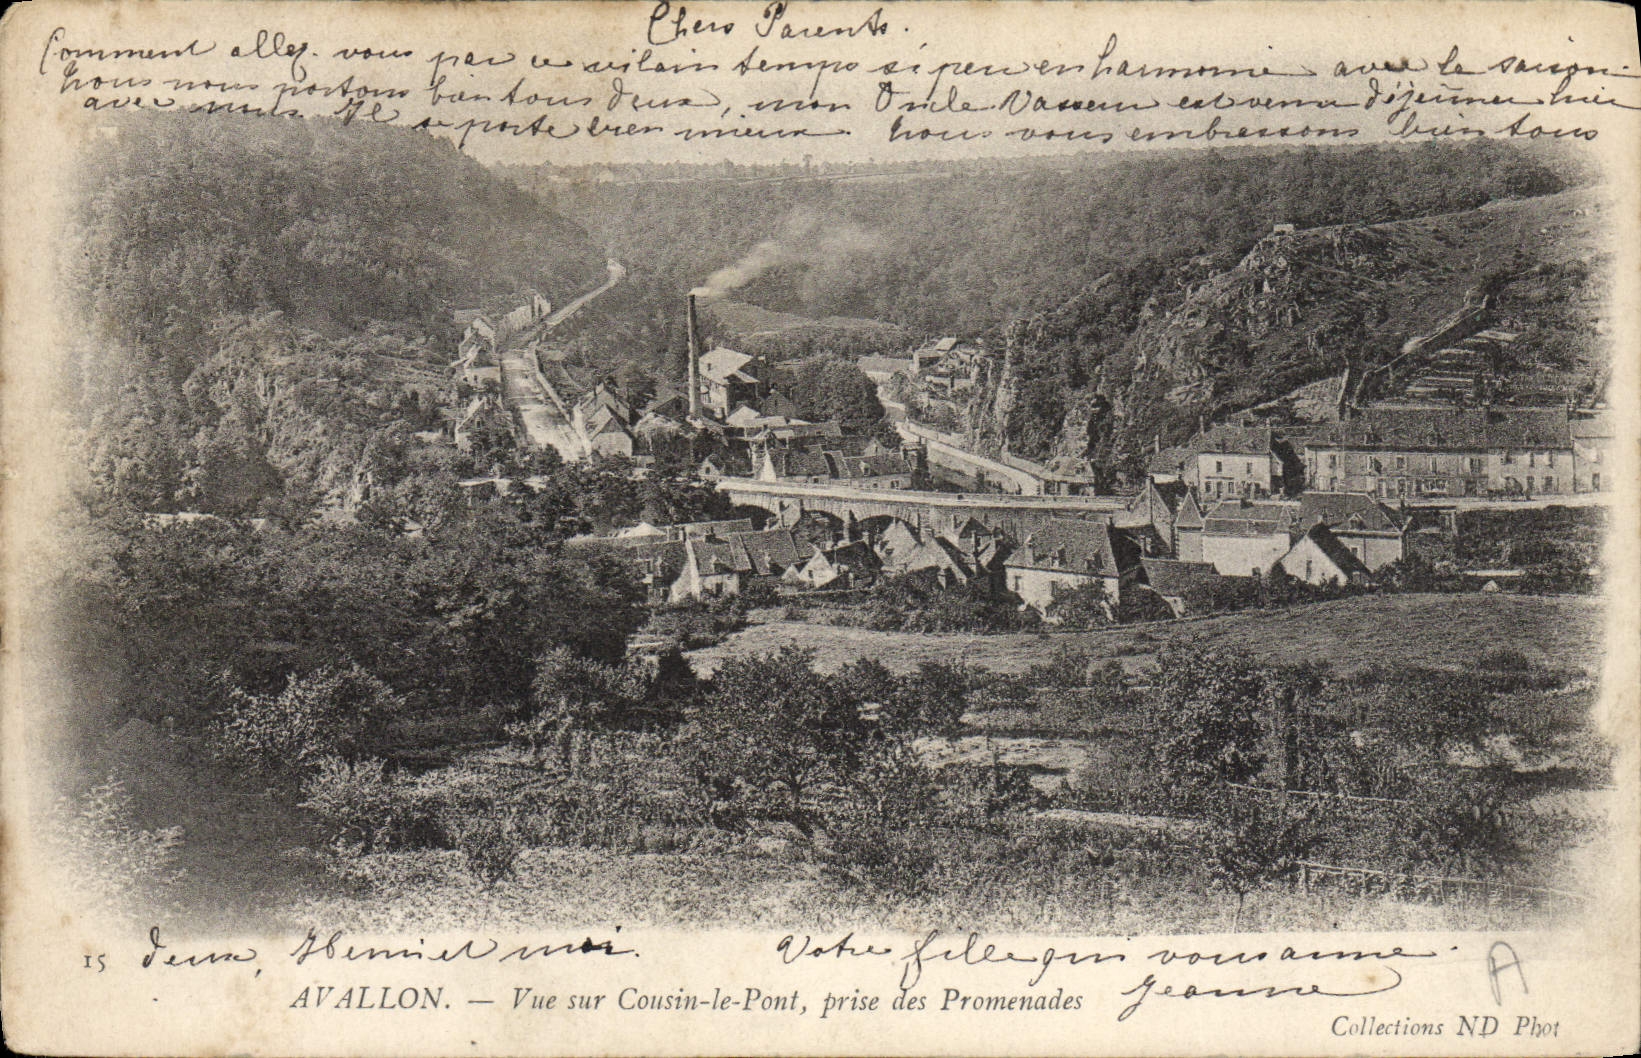 Chers Parents.
Comment allez-vous par ce vilain temps si peu en harmonie avec la saison.
nous nous portons bien tous deux, mon Oncle Vasseur est venu déjeuner hier
avec nous. Il se porte bien mieux. nous vous embrassons bien tous
15 deux, Henri et moi. Votre fille qui vous aime.
Jeanne
AVALLON. — Vue sur Cousin-le-Pont, prise des Promenades
A
Collections ND Phot